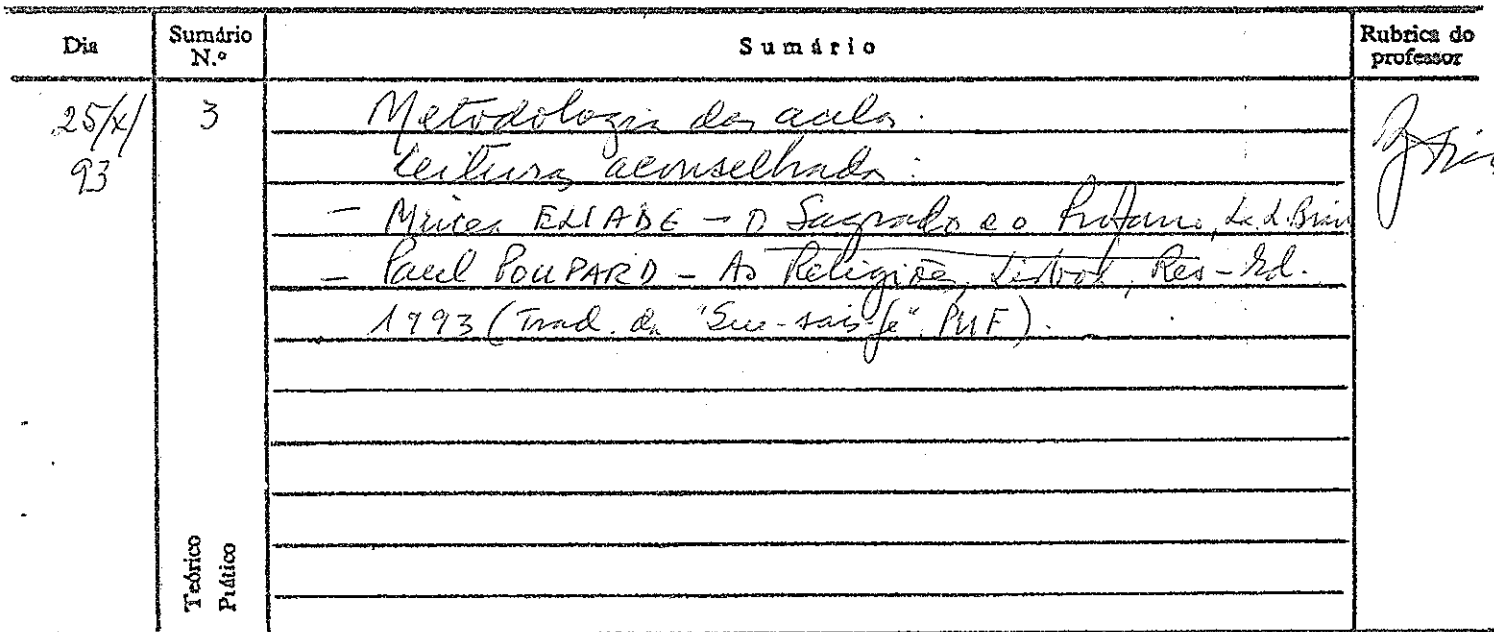 Dia Sumário N.º Sumário Rubrica do professor
25/X/93 3 Metodologia das aulas.
Leitura aconselhada:
- Mircea ELIADE - O Sagrado e o Profano, L. d. Bras
- Paul POUPARD - As Religiões, Lisboa, Res-Ed.
1993 (Trad. da "Que-sais-je" PUF).
Teórico
Prático